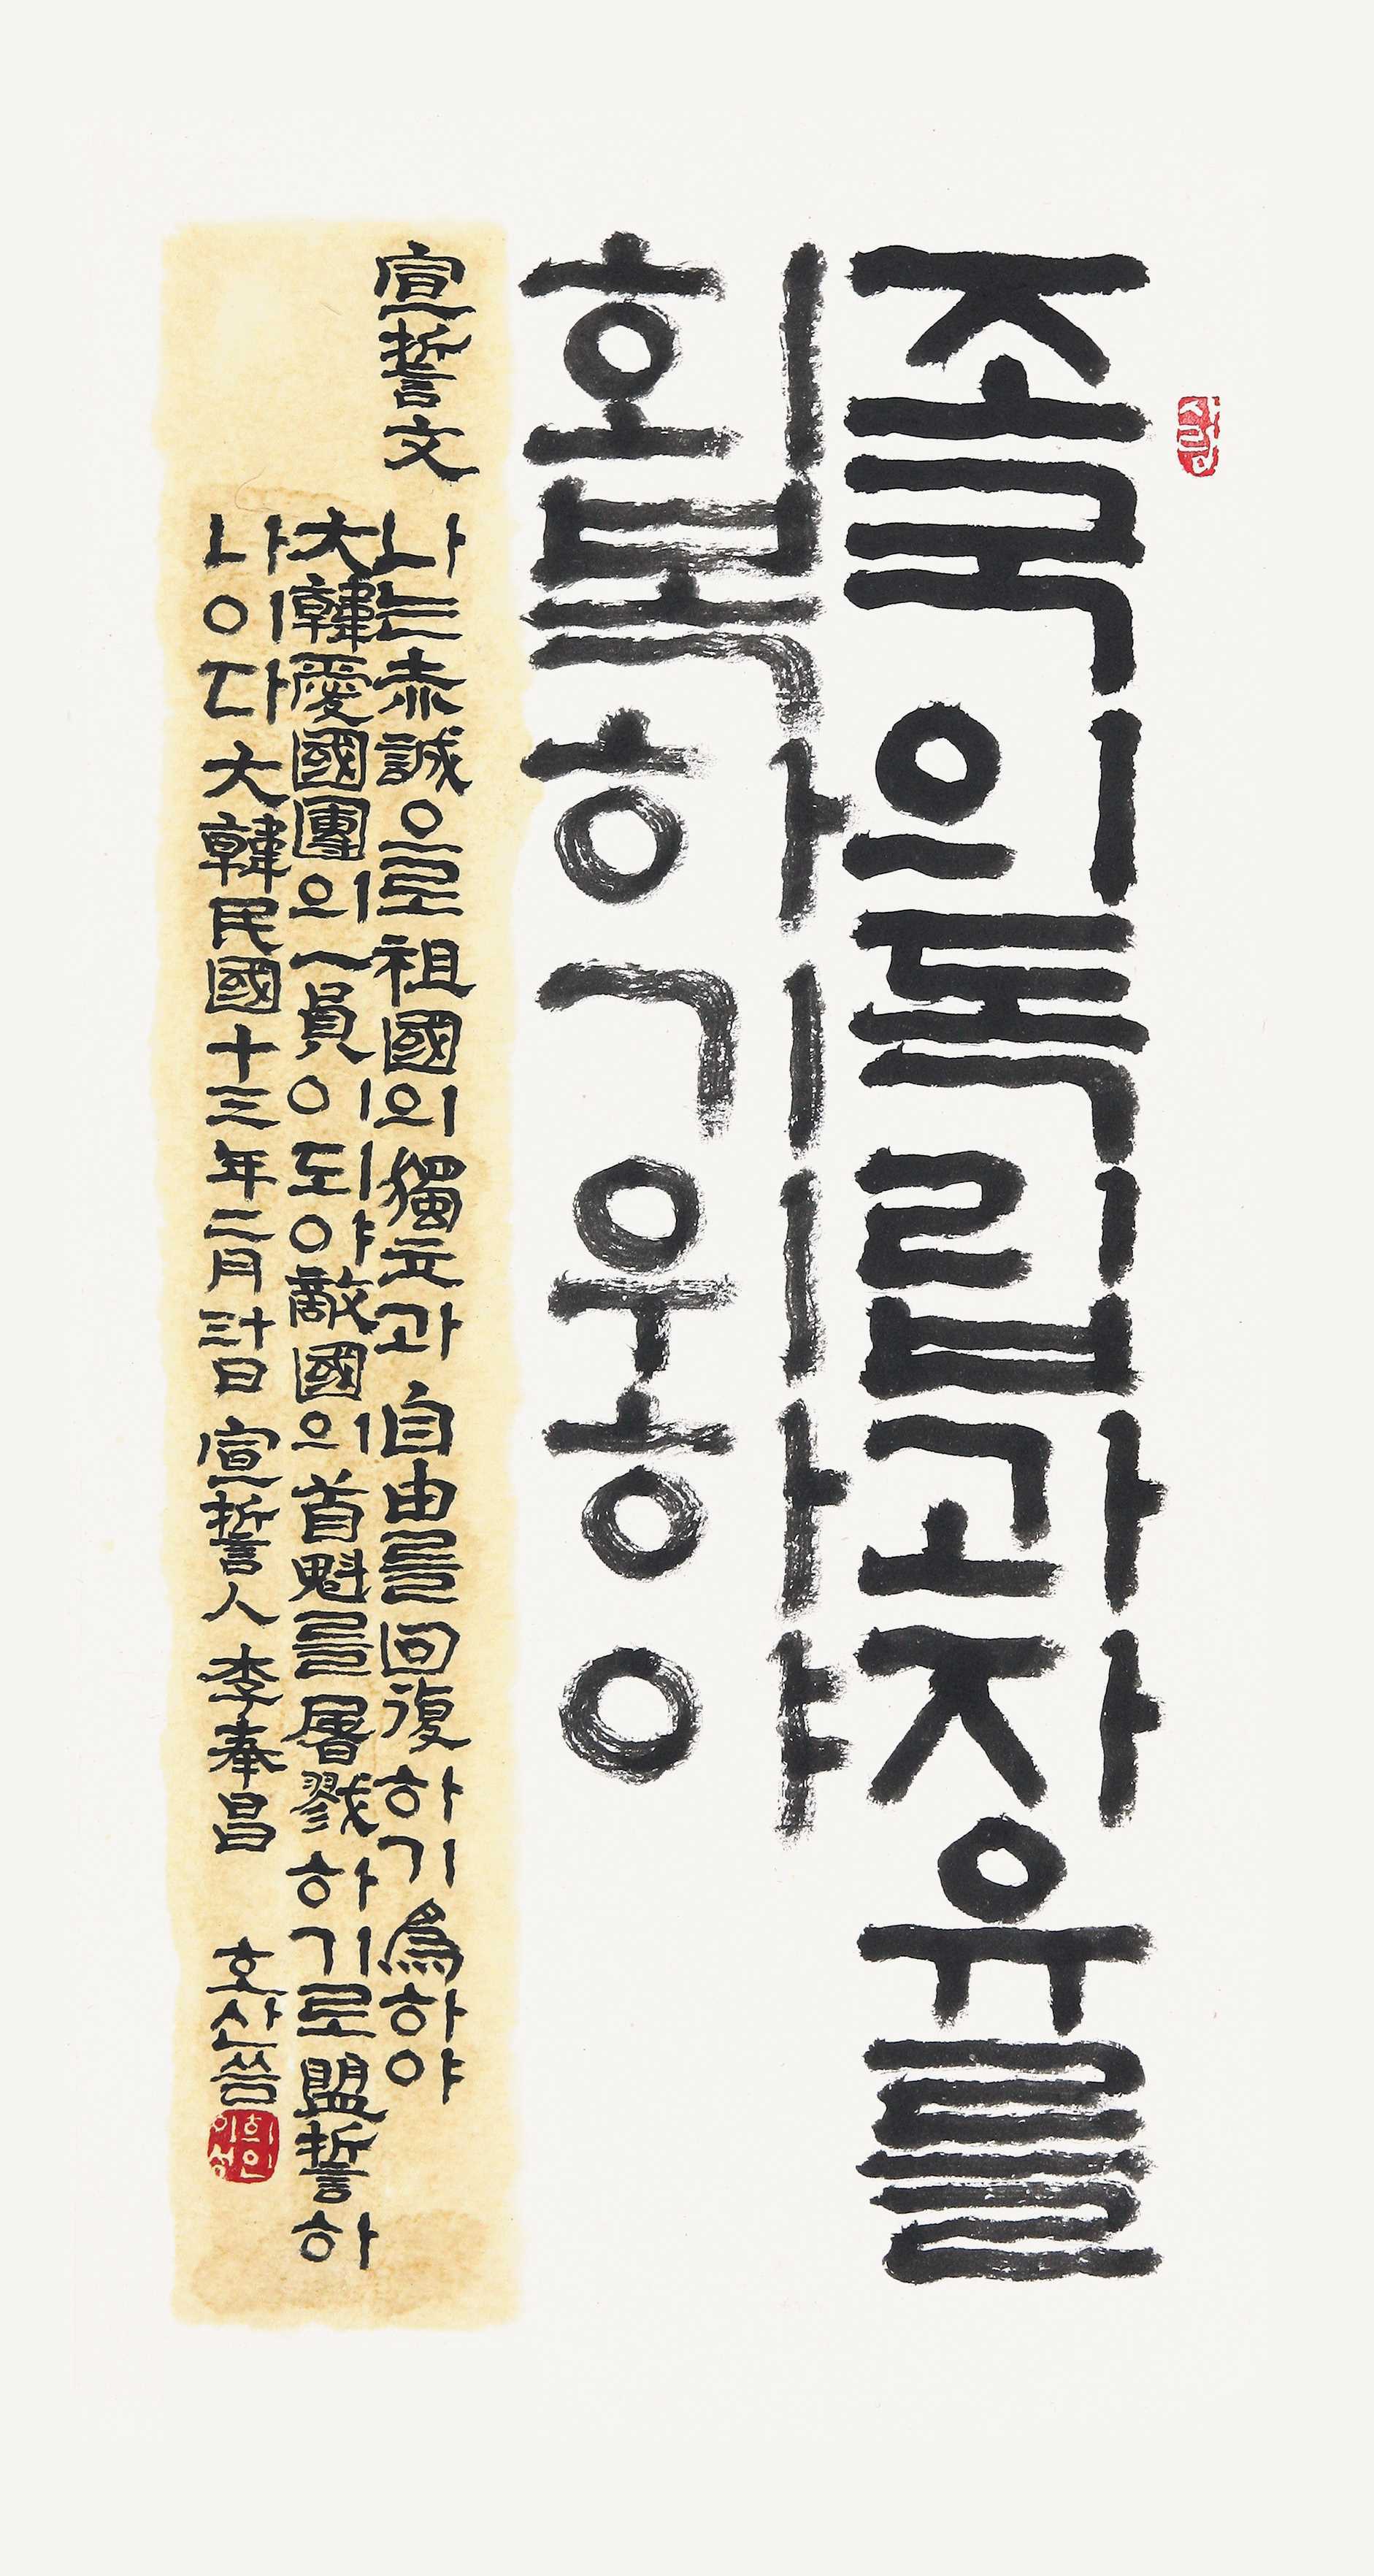 조국의독립과자유를
회복하기위하야
宣誓文
나는赤誠으로祖國의獨立과自由를回復하기爲하야
大韓愛國團의一員이되야敵國의首魁를屠戮하기로盟誓하
나이다大韓民國十三年二月十三日宣誓人李奉昌 호산씀